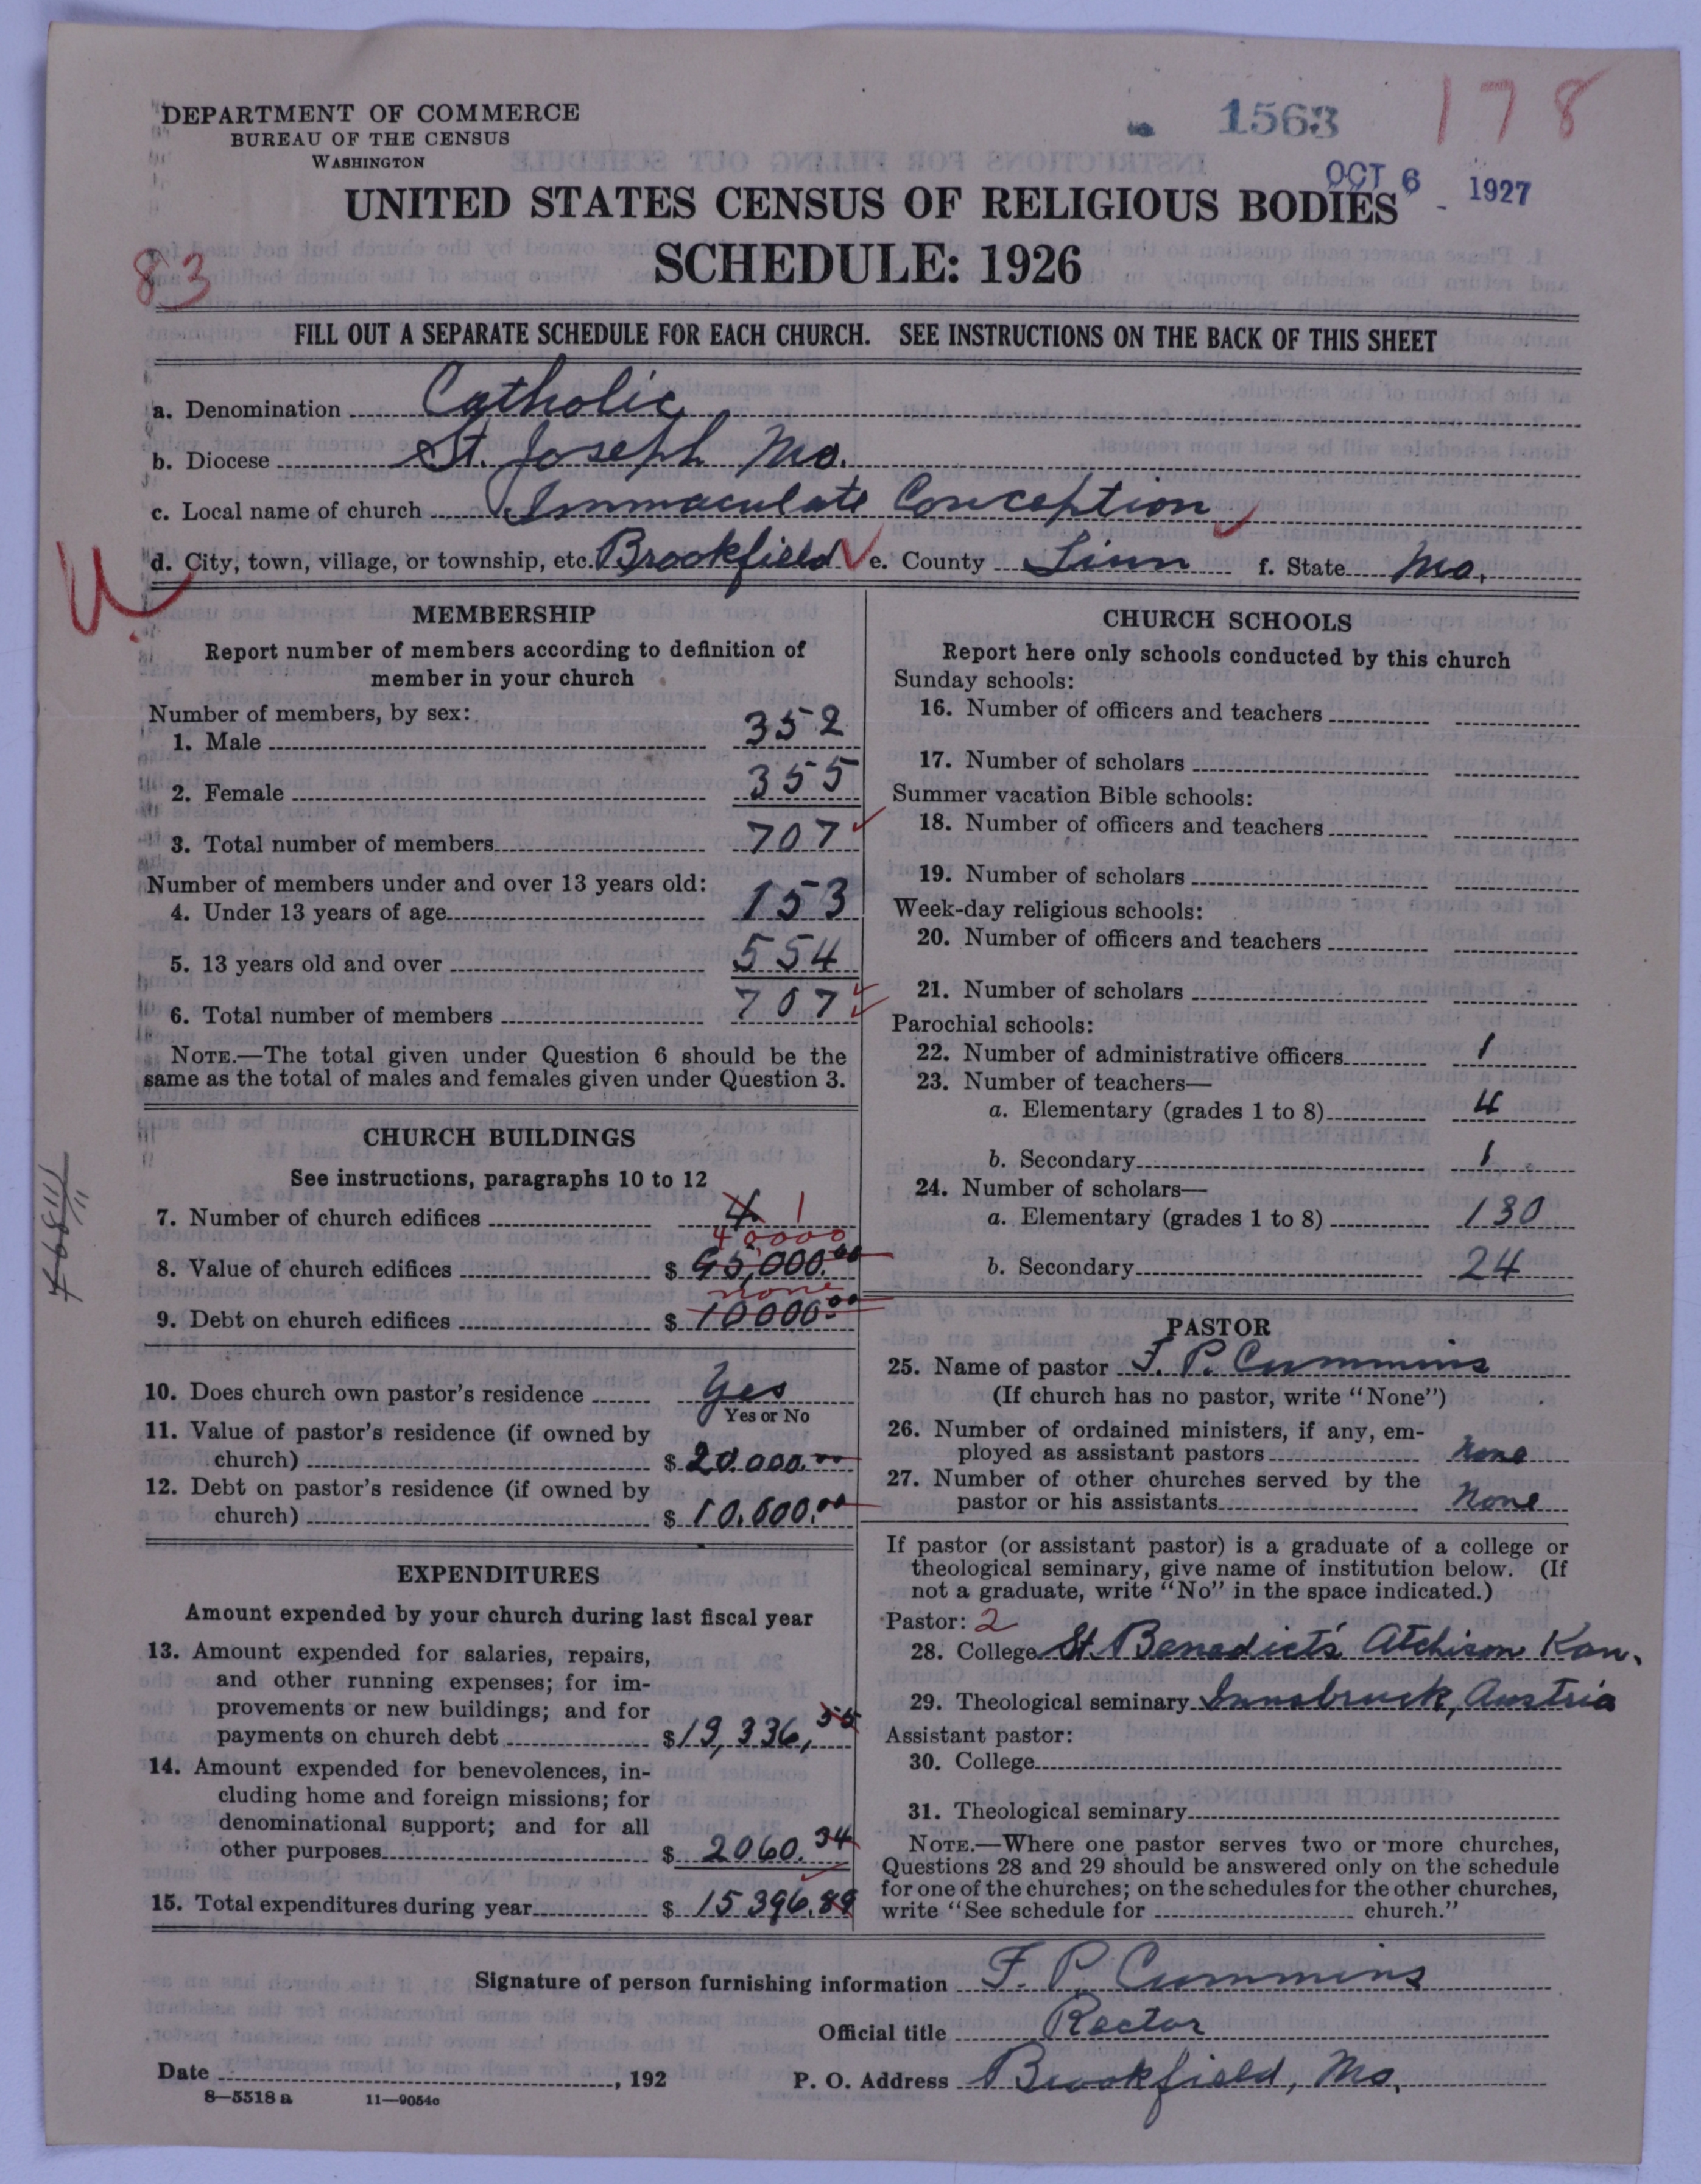 DEPARTMENT OF COMMERCE
BUREAU OF THE CENSUS
WASHINGTON
1563
178
OCT 6 1927
UNITED STATES CENSUS OF RELIGIOUS BODIES
SCHEDULE: 1926
83
FILL OUT A SEPARATE SCHEDULE FOR EACH CHURCH. SEE INSTRUCTIONS ON THE BACK OF THIS SHEET
a. Denomination Catholic
b. Diocese St. Joseph Mo.
c. Local name of church Immaculate Conception
d. City, town, village, or township, etc. Brookfield e. County Linn f. State Mo.
U
MEMBERSHIP
Report number of members according to definition of
member in your church
Number of members, by sex:
1. Male 352
2. Female 355
3. Total number of members 707
Number of members under and over 13 years old:
4. Under 13 years of age 153
5. 13 years old and over 554
6. Total number of members 707
NOTE.—The total given under Question 6 should be the
same as the total of males and females given under Question 3.
CHURCH BUILDINGS
See instructions, paragraphs 10 to 12
7. Number of church edifices 4 1
40000
8. Value of church edifices $ 95,000.00
none
9. Debt on church edifices $ 10000.00
10. Does church own pastor's residence Yes
Yes or No
11. Value of pastor's residence (if owned by
church) $ 20.000.00
12. Debt on pastor's residence (if owned by
church) $ 10,000.00
EXPENDITURES
Amount expended by your church during last fiscal year
13. Amount expended for salaries, repairs,
and other running expenses; for im-
provements or new buildings; and for
payments on church debt $13,336,55
14. Amount expended for benevolences, in-
cluding home and foreign missions; for
denominational support; and for all
other purposes $ 2060.34
15. Total expenditures during year $ 15396.89
CHURCH SCHOOLS
Report here only schools conducted by this church
Sunday schools:
16. Number of officers and teachers
17. Number of scholars
Summer vacation Bible schools:
18. Number of officers and teachers
19. Number of scholars
Week-day religious schools:
20. Number of officers and teachers
21. Number of scholars
Parochial schools:
22. Number of administrative officers 1
23. Number of teachers—
a. Elementary (grades 1 to 8) 4
b. Secondary 1
24. Number of scholars—
a. Elementary (grades 1 to 8) 130
b. Secondary 24
PASTOR
25. Name of pastor F. P. Cummins
(If church has no pastor, write "None")
26. Number of ordained ministers, if any, em-
ployed as assistant pastors None
27. Number of other churches served by the
pastor or his assistants None
If pastor (or assistant pastor) is a graduate of a college or
theological seminary, give name of institution below. (If
not a graduate, write "No" in the space indicated.)
Pastor: 2
28. College St. Benedict's Atchison Kan.
29. Theological seminary Innsbruck, Austria
Assistant pastor:
30. College
31. Theological seminary
NOTE.—Where one pastor serves two or more churches,
Questions 28 and 29 should be answered only on the schedule
for one of the churches; on the schedules for the other churches,
write "See schedule for church."
Signature of person furnishing information F. P. Cummins
Official title Rector
Date , 192 P. O. Address Brookfield, Mo.
8—5518 a 11—9054c